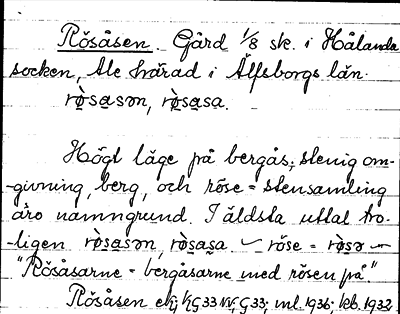 Rösåsen. Gård 1/8 sk. i Hålanda
socken, Ale härad i Älfsborgs län.
rò̤sa̤sən, rò̤sa̤sa.
Högt läge på bergås; stenig om-
-givning, berg, och röse = stensamling
äro namngrund. I äldsta uttal tro-
-ligen rò̤sa̤sən, rò̤sa̤sa – röse = rò̤sə –
"Rösåsarne = bergåsarne med rösen på."
Rösåsen ekj G33; ml. 1936; kb. 1932